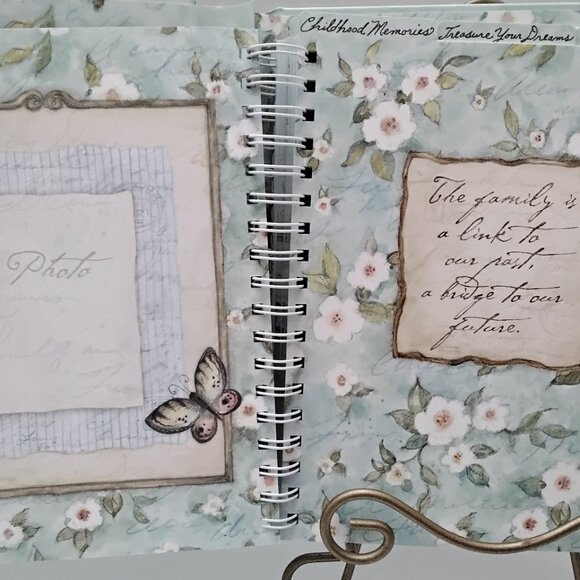 Childhood Memories Treasure Your Dreams
Photo
The family is
a link to
our past,
a bridge to our
future.